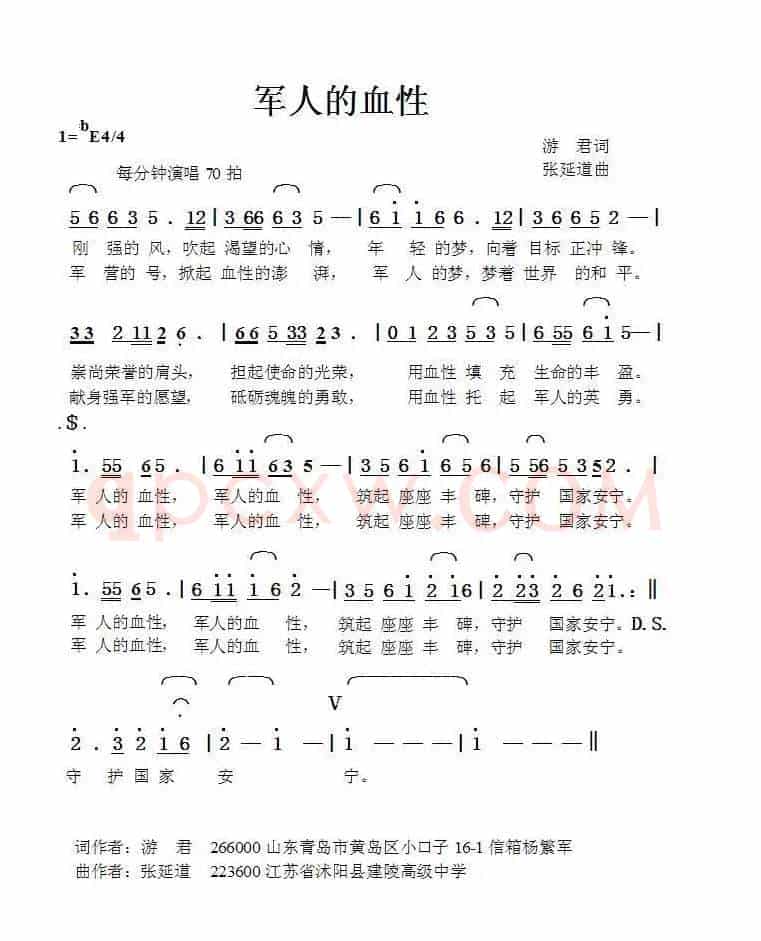 军人的血性
1=bE4/4
游 君词
每分钟演唱 70 拍
张延道曲
5 6 6 3 5 . 12 | 3 66 6 3 5 — | 6 i i 6 6 . 12 | 3 5 6 5 2 — |
刚 强的 风，吹起 渴望的心 情， 年 轻 的梦，向着 目标 正冲 锋。
军 营的 号，掀起 血性的澎 湃， 军 人 的梦，梦着 世界 的和 平。
33 2 112 6 . | 66 5 3323 . | 0 1 2 3 5 3 5 | 6 55 6 i 5— |
崇尚荣誉的肩头， 担起使命的光荣， 用血性 填 充 生命的丰 盈。
献身强军的愿望， 砥砺魂魄的勇敢， 用血性 托 起 军人的英 勇。
.$.
i. 55 65. | 6 ii 63 5 — | 3 5 6 i 6 5 6 | 5 5 6 5 3 5 2 . |
军 人的 血性， 军人的血 性， 筑起 座座 丰 碑，守护 国家安宁。
军 人的 血性， 军人的血 性， 筑起 座座 丰 碑，守护 国家安宁。
qpcxw.COM
i. 55 6 5 . | 6 ii i 6 2 — | 3 5 6 i 2 i6 | 2 23 2 6 2i. : ‖
军 人的 血性， 军人的血 性， 筑起 座座 丰 碑，守护 国家安宁。D.S.
军 人的 血性， 军人的血 性， 筑起 座座 丰 碑，守护 国家安宁。
V
2 . 3 2 i 6 | 2 — i — | i — — — | i — — ‖
守 护 国 家 安 宁。
词作者：游 君 266000 山东青岛市黄岛区小口子 16-1 信箱杨繁军
曲作者：张延道 223600 江苏省沭阳县建陵高级中学